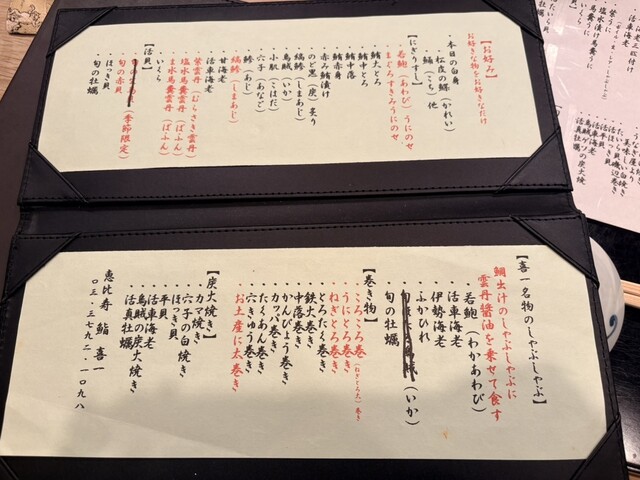 【お好み】
お好きな物をお好きなだけ
・本日の白身
松皮の鰈（かれい）
鯒（こち）他
【にぎりすし】
・若鮑（あわび）うにのせ
・まぐろすきみうにのせ
・鮪大とろ
・鮪中とろ
・鮪中落
・鮪赤身
・赤み鮪漬け
・のど黒（炭）炙り
・縞鯵（しまあじ）
・烏賊（いか）
・小肌（こはだ）
・穴子（あなご）
・鯵（あじ）
・縞鯵（しまあじ）
・甘海老
・活車海老
・紫雲丹（むらさき雲丹）
・塩水馬糞雲丹（ばふん）
・ま水馬糞雲丹（ばふん）
・いくら
【活貝】
・旬の赤貝（季節限定）
・ほっき貝
・旬の牡蠣
【喜一名物のしゃぶしゃぶ】
鯛出汁のしゃぶしゃぶに
雲丹醤油を乗せて食す
・若鮑（わかあわび）
・活車海老
・伊勢海老
・ふかひれ
（いか）
・旬の牡蠣
【巻き物】
・ころころ巻（ねぎとろたく）巻き
・うにとろ巻き
・ねぎとろ巻き
・とろたく巻き
・鉄火巻き
・中落巻き
・かんぴょう巻き
・カッパ巻き
・たくあん巻き
・穴きゅう巻き
・お土産に太巻き
【炭火焼き】
・カマ焼き
・穴子の白焼き
・ほっき貝
・平貝
・活車海老
・烏賊の炭火焼き
・活真牡蠣
恵比寿 鮨 喜一
〇三-三七九二-一〇九八